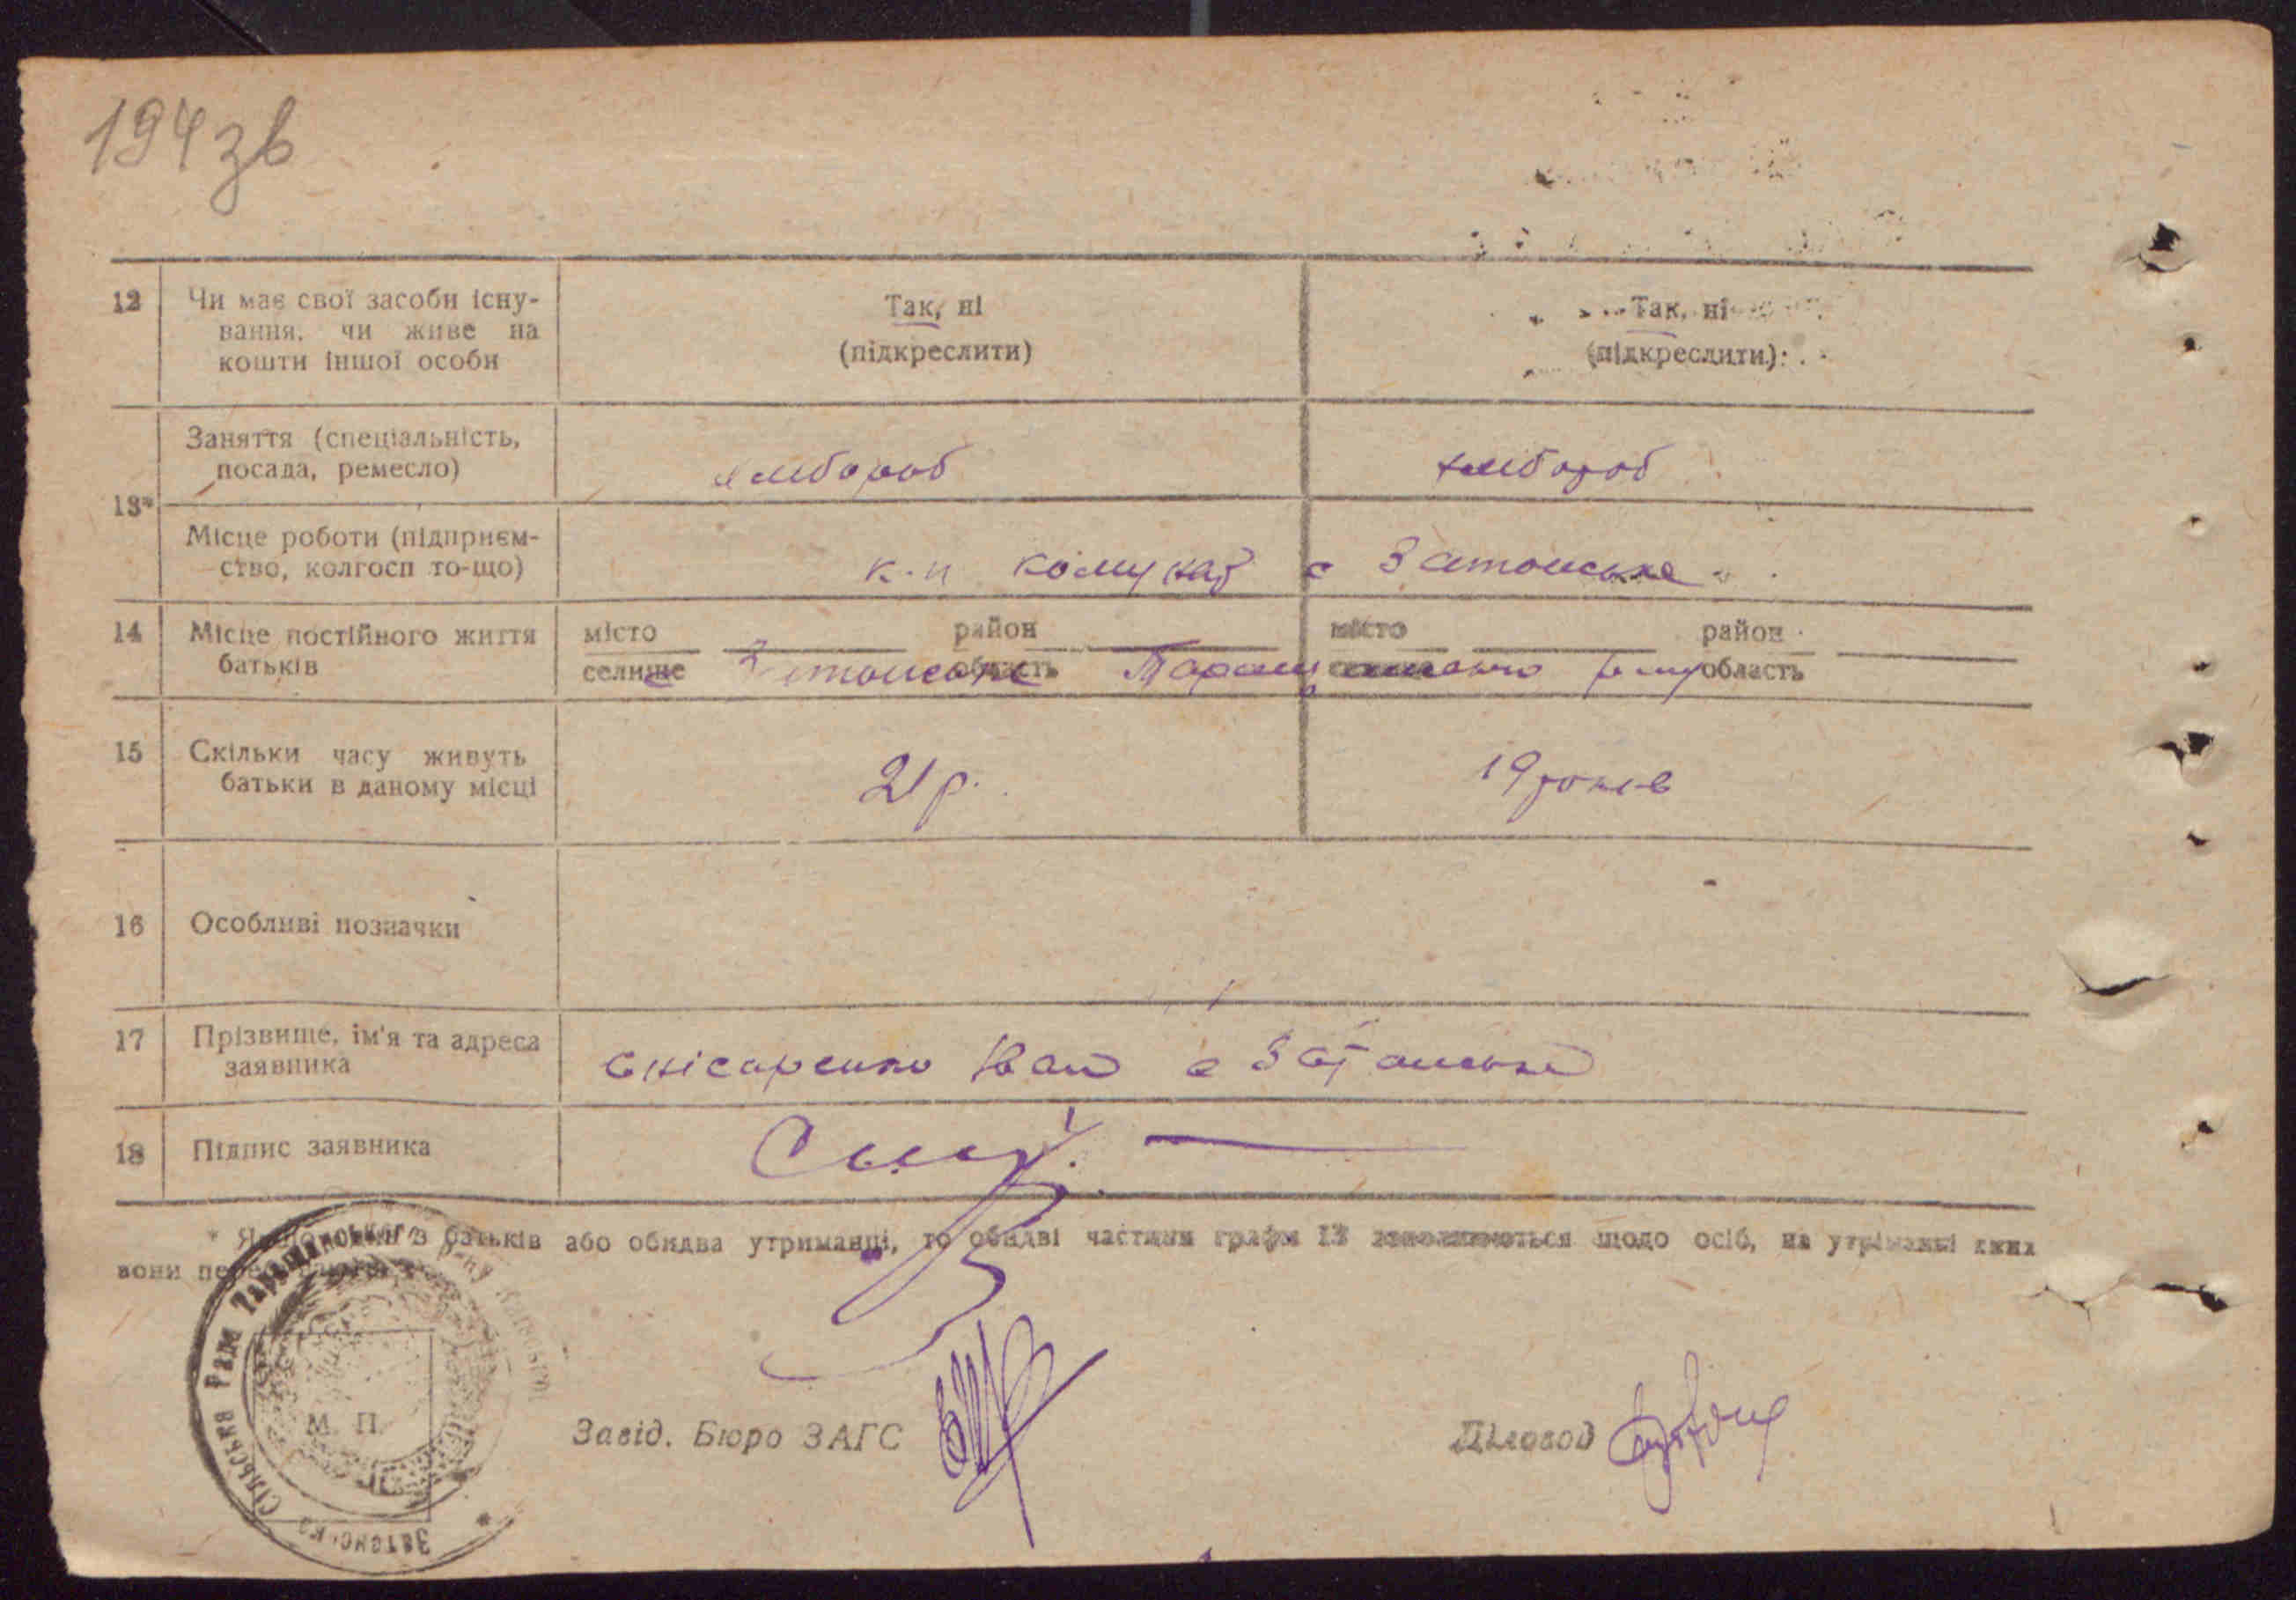 194 зв
12 Чи має свої засоби існу- Так, ні Так, ні
вання, чи живе на (підкреслити) (підкреслити)
кошти іншої особи
Заняття (спеціальність, хлібороб хлібороб
посада, ремесло)
13*
Місце роботи (підприєм- к-п комунар с Затонське
ство, колгосп то-що)
14 Місце постійного життя місто район місто район
батьків селище Затонське область Таращанського р-ну область
15 Скільки часу живуть 21 р. 19 років
батьки в даному місці
16 Особливі позначки
17 Прізвище, ім'я та адреса Снісаренко Іван с Затонське
заявника
18 Підпис заявника
* Якщо один з батьків або обидва утриманці, то обидві частини графи 13 заповнюються щодо осіб, на утриманні яких
вони перебувають.
Затонська Сільська Рада Таращанського р-ну Київської
М. П.
Завід. Бюро ЗАГС Діловод